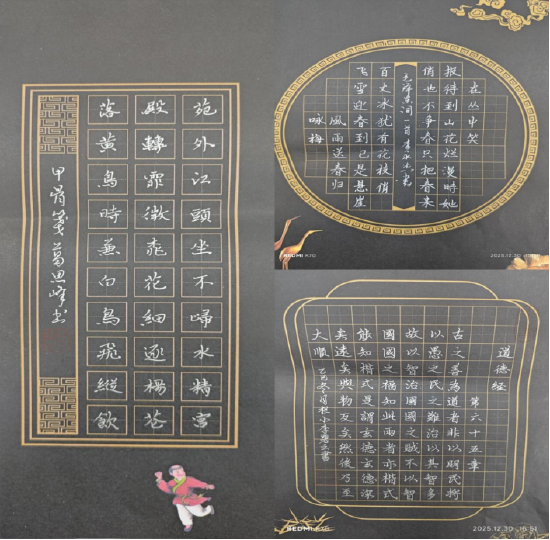 苑外江頭坐不歸水精宮
殿轉霏微桃花細逐楊花
落黃鳥時兼白鳥飛縱飲
甲骨笺葛思峰书
咏梅
風雨送春归
飞雪迎春到已是悬崖
百丈冰犹有花枝俏
毛澤東词一首李永书
俏也不争春只把春来
报得到山花烂漫時她
在丛中笑
REDMI K70
2025.12.30
道德經
第六十五章
古之善為道者非以明民將
以愚之民之難治以其智多
故以智治國國之賊不以智
國國之福知此兩者亦楷式
能知楷式是謂玄德玄德深
矣遠矣與物反矣然後乃至
大順
乙巳冬月小李書
REDMI K70
2025.12.30 16:51